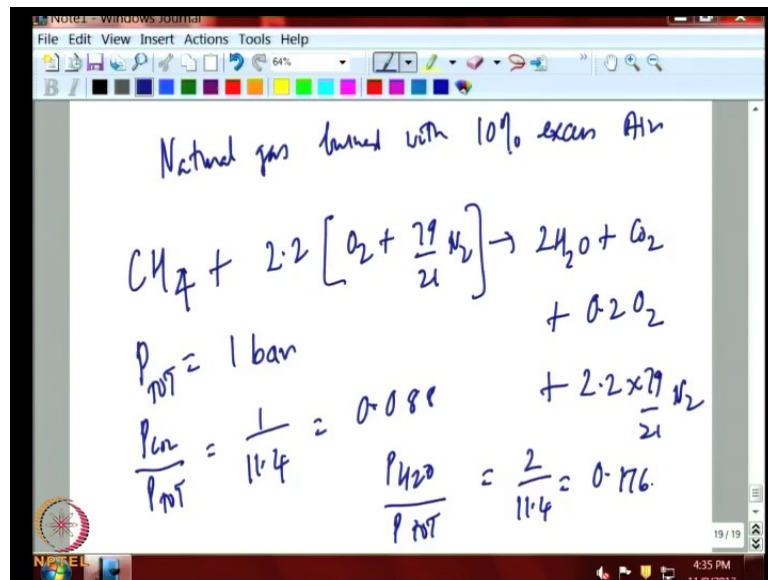 Note1 - Windows Journal
File Edit View Insert Actions Tools Help
64%
B I
Natural gas burned with 10% excess Air
CH4 + 2.2 [ O2 + 79/21 N2 ] → 2H2O + CO2
+ 0.2 O2
+ 2.2 × 79/21 N2
PTOT = 1 bar
PCO2/PTOT = 1/11.4 = 0.088
PH2O/PTOT = 2/11.4 = 0.176.
19 / 19
NPTEL
4:35 PM